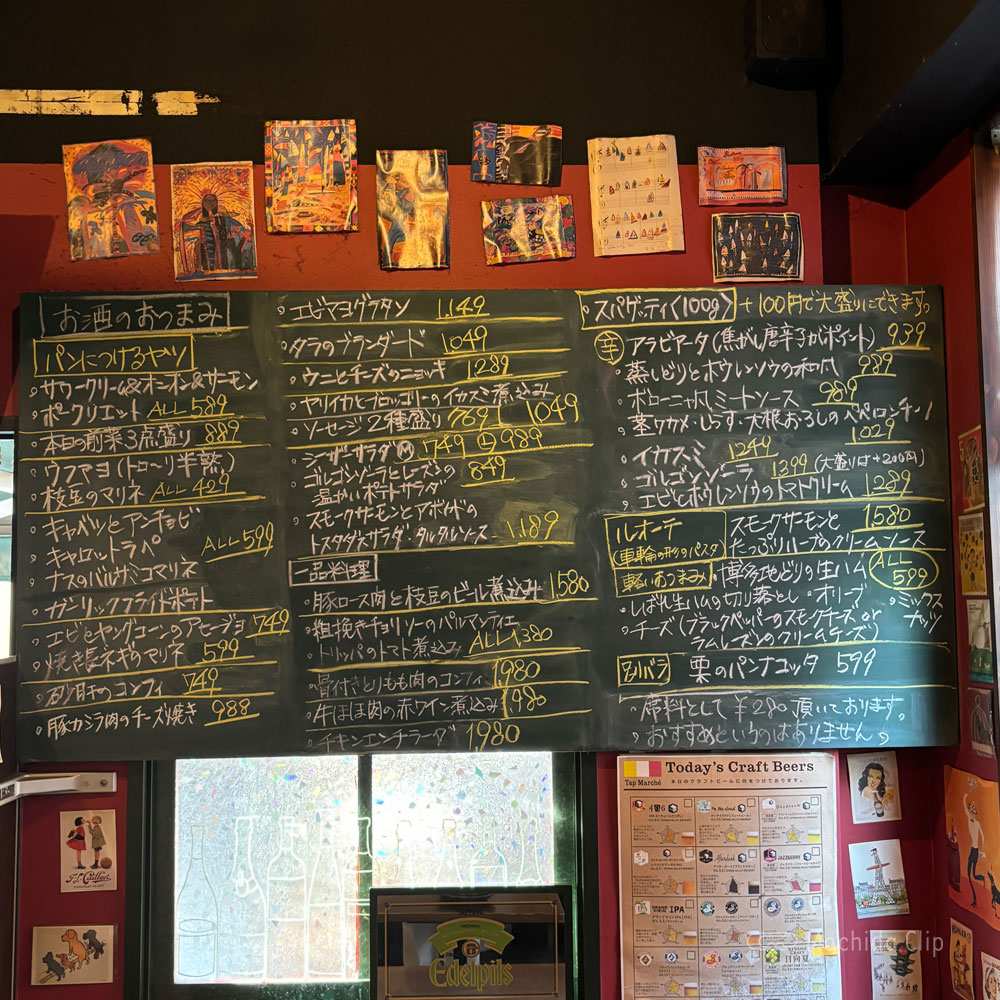 お酒のおつまみ
パンにつけるヤツ
・サワークリーム&オニオン&サーモン
・ポークリエット ALL 589
・本日の前菜3点盛り 889
・ウフマヨ(トロ〜リ半熟)
・枝豆のマリネ ALL 429
・キャベツとアンチョビ
・キャロットラペ ALL 599
・ナスのバルサミコマリネ
・ガーリックフライドポテト
・エビとヤングコーンのアヒージョ 749
・焼き長ネギのマリネ 599
・砂肝のコンフィ 749
・豚カシラ肉のチーズ焼き 988
・エビマヨグラタン 1,149
・タラのブランダード 1049
・ウニとチーズのニョッキ 1289
・ヤリイカとブロッコリーのイカスミ煮込み 1049
・ソーセージ2種盛り 769
・シーザーサラダ Ⓜ 749 Ⓛ 989
・ゴルゴンゾーラとレーズンの
温かいポテトサラダ 849
・スモークサーモンとアボカドの
トスタダスサラダ・タルタルソース 1,189
一品料理
・豚ロース肉と枝豆のビール煮込み 1,580
・粗挽きチョリソーのパルマンティエ
・トリッパのトマト煮込み ALL 1,380
・骨付きとりもも肉のコンフィ 1,980
・牛ほほ肉の赤ワイン煮込み 1,980
・チキンエンチラーダ 1,980
・スパゲッティ(100g) +100円で大盛りにできます。
辛 アラビアータ(焦がし唐辛子がポイント) 939
・蒸しどりとホウレンソウの和風 989
・ボローニャ風ミートソース 989
・茎ワカメ・しらす・大根おろしのペペロンチーノ 1029
・イカスミ 1249
・ゴルゴンゾーラ 1399 (大盛りは+200円)
・エビとホウレンソウのトマトクリーム 1289
ルオーテ
(車輪の形のパスタ
スモークサーモンと 1,580
たっぷりハーブのクリームソース
軽いおつまみ ・博多地どりの生ハム ALL 599
・しばれ生ハムの切り落とし ・オリーブ ・ミックスナッツ
・チーズ(ブラックペッパーのスモークチーズ or
ラムレーズンのクリームチーズ)
別バラ 栗のパンナコッタ 599
・席料として¥280頂いております。
・おすすめというのはありません。
Today's Craft Beers
Tap Marché
本日のクラフトビールに印をつけております。
JAZZBERRY
IPA
日向夏
Edelpils
Machine Clip